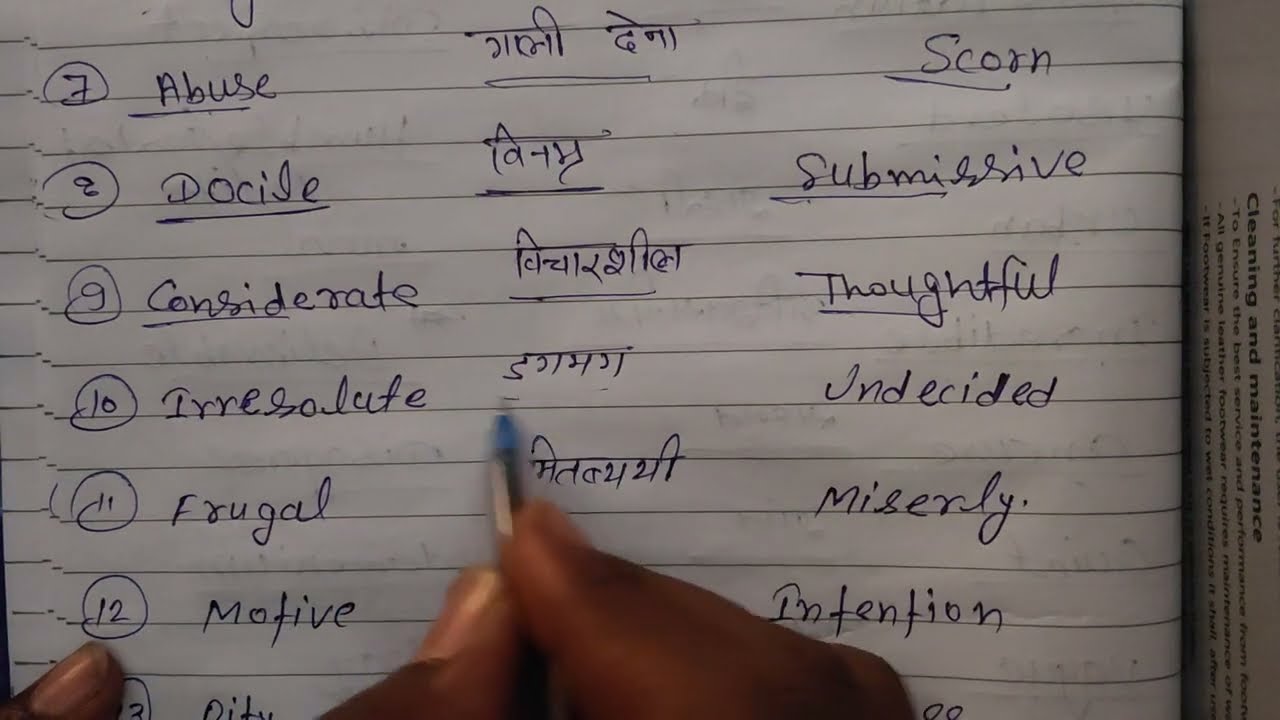 7 Abuse गाली देना Scorn
8 Docile विनम्र Submissive
9 Considerate विचारशील Thoughtful
10 Irresolute डगमग Undecided
11 Frugal मितव्ययी Miserly.
12 Motive Intention
Pity
Cleaning and maintenance
-To Ensure the best service and performance from
-All genuine leather footwear requires maintenance of
-If Footwear is subjected to wet conditions it shall, after